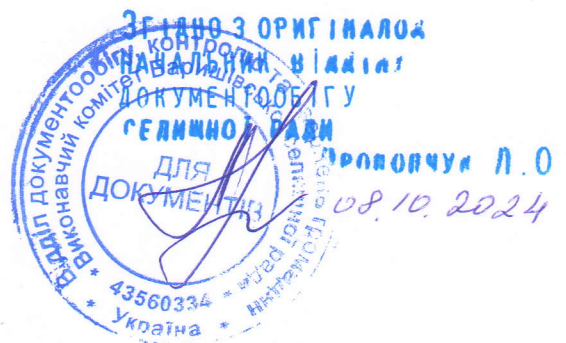 ЗГІДНО З ОРИГІНАЛОМ
НАЧАЛЬНИК ВІДДІЛУ
ДОКУМЕНТООБІГУ
СЕЛИЩНОЇ РАДИ
Прокопчук Л.О
08.10.2024
Відділ документообігу, контролю та звернень громадян
Виконавчий комітет Баришівської селищної ради
ДЛЯ
ДОКУМЕНТІВ
* 43560334 *
* Україна *